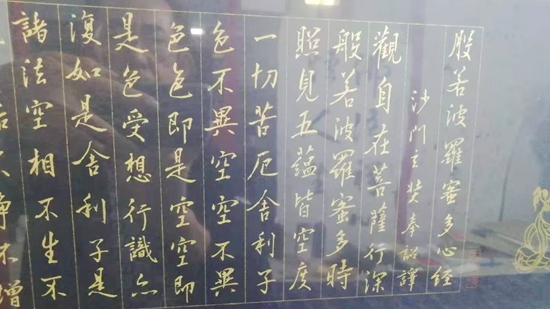 般若波羅蜜多心經
沙門玄奘奉詔譯
觀自在菩薩行深
般若波羅蜜多時
照見五蘊皆空度
一切苦厄舍利子
色不異空空不異
色色即是空空即
是色受想行識亦
復如是舍利子是
諸法空相不生不
不淨不增